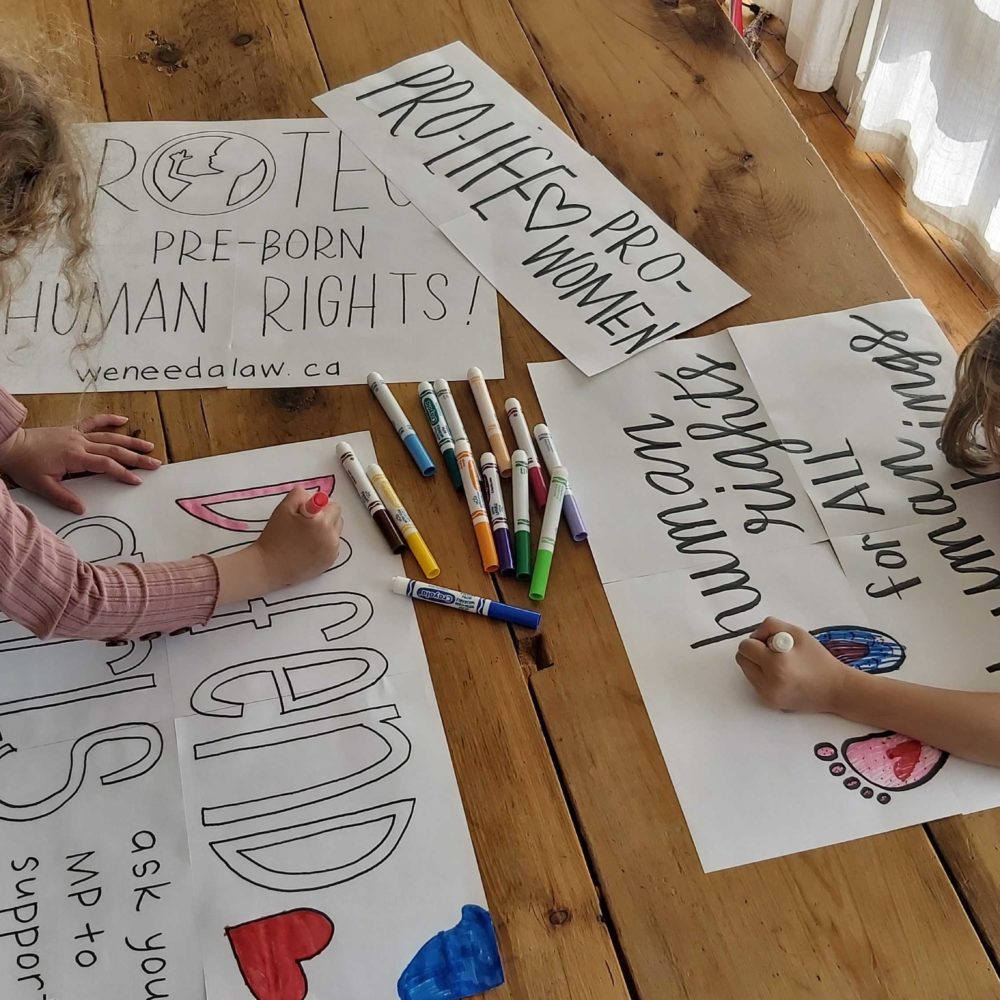 PROTEC
PRE-BORN
HUMAN RIGHTS!
weneedalaw.ca
PRO-LIFE
PRO-
WOMEN
human
rights
for ALL
Defend
GIrLS
ask you
MP to
suppor
Crayola